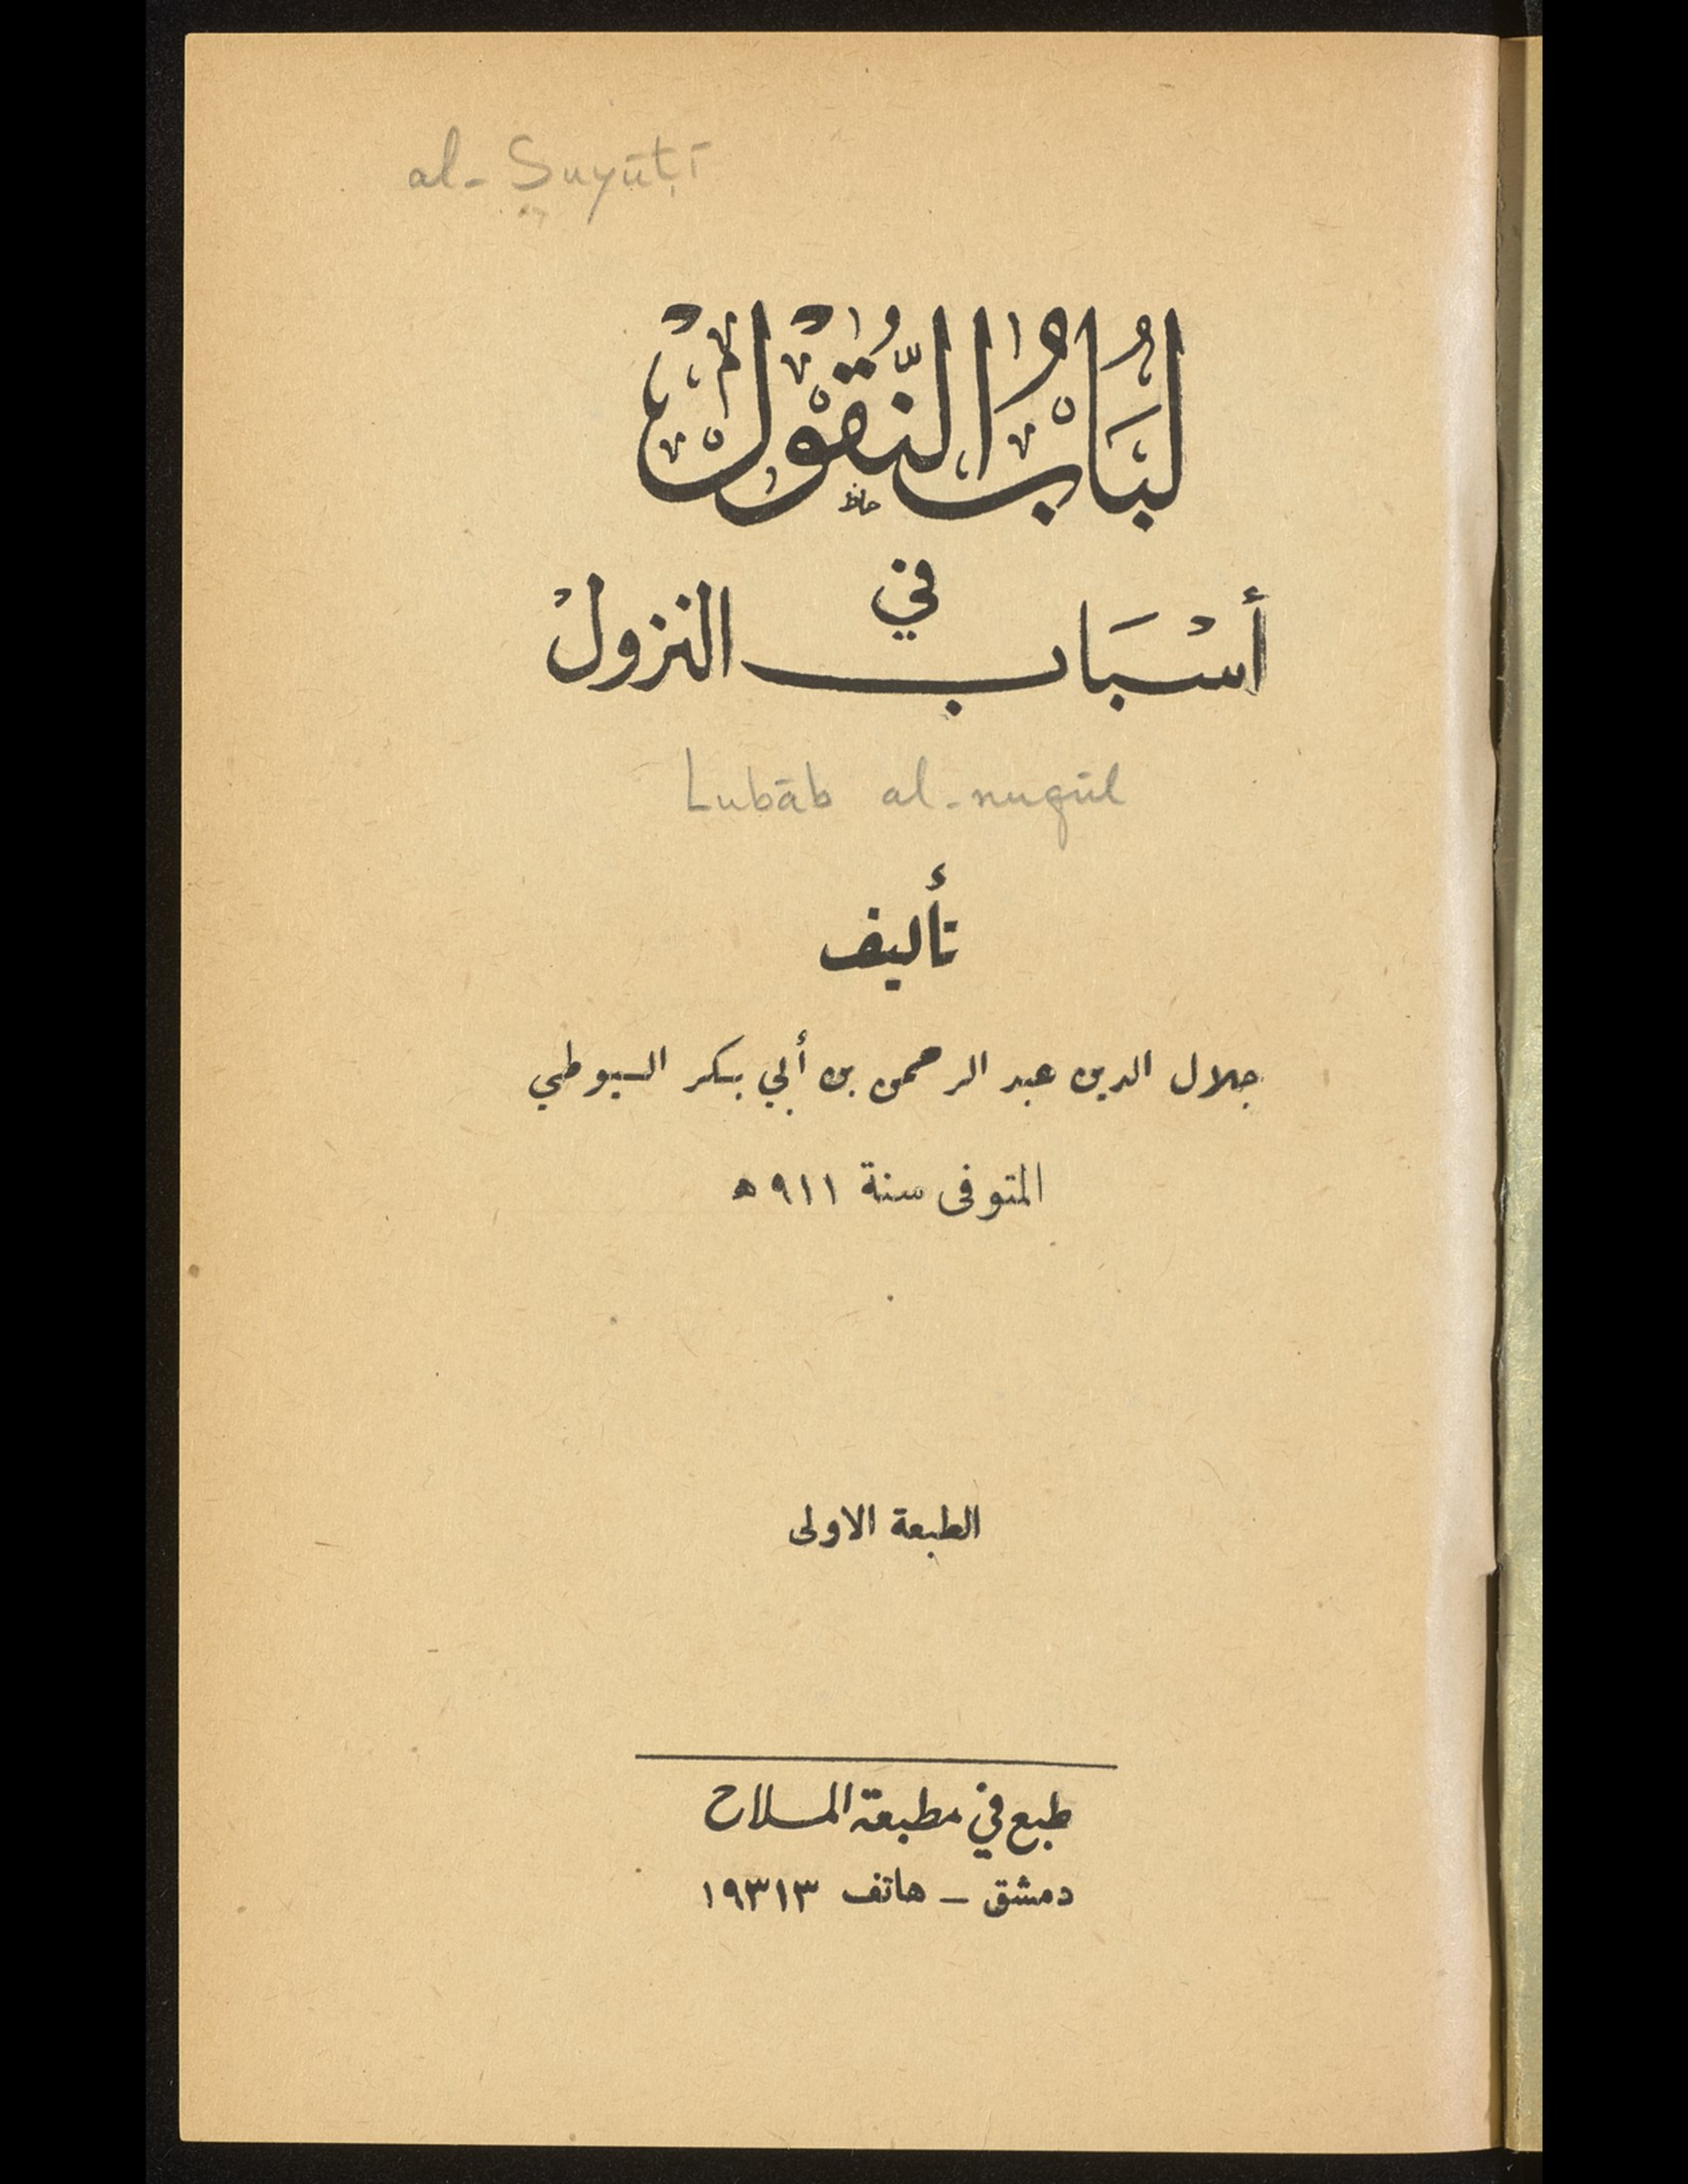 al-Suyūṭī
لُبَابُ النُّقُوْلْ
حافظ
في
أسْبَاب النزولْ
Lubāb al-nuqūl
تأليف
جلال الدين عبد الرحمن بن أبي بكر السيوطي
المتوفى سنة ٩١١ ه
الطبعة الاولى
طبع في مطبعة الملاح
دمشق - هاتف ١٩٣١٣